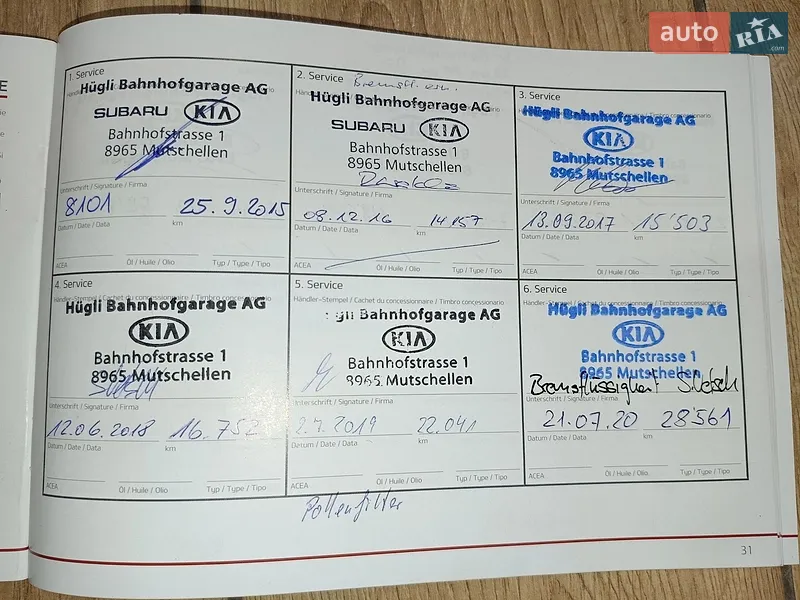 auto RIA .com
E
1. Service
Hügli Bahnhofgarage AG
SUBARU KIA
Bahnhofstrasse 1
8965 Mutschellen
Unterschrift / Signature / Firma
8101 25.9.2015
Datum / Date / Data km
ACEA Öl / Huile / Olio Typ / Type / Tipo
2. Service
Hügli Bahnhofgarage AG
SUBARU KIA
Bahnhofstrasse 1
8965 Mutschellen
Unterschrift / Signature / Firma
08.12.16 14'157
Datum / Date / Data km
ACEA Öl / Huile / Olio Typ / Type / Tipo
3. Service
Hügli Bahnhofgarage AG
KIA
Bahnhofstrasse 1
8965 Mutschellen
Unterschrift / Signature / Firma
13.09.2017 15'503
Datum / Date / Data km
ACEA Öl / Huile / Olio Typ / Type / Tipo
4. Service
Händler-Stempel / Cachet du concessionnaire / Timbro concessionario
Hügli Bahnhofgarage AG
KIA
Bahnhofstrasse 1
8965 Mutschellen
Unterschrift / Signature / Firma
12.06.2018 16.752
Datum / Date / Data km
ACEA Öl / Huile / Olio Typ / Type / Tipo
5. Service
Händler-Stempel / Cachet du concessionnaire / Timbro concessionario
Bahnhofgarage AG
KIA
Bahnhofstrasse 1
8965 Mutschellen
Unterschrift / Signature / Firma
2.7.2019 22.041
Datum / Date / Data km
ACEA Öl / Huile / Olio Typ / Type / Tipo
Pollenfilter
6. Service
Händler-Stempel / Cachet du concessionnaire / Timbro concessionario
Hügli Bahnhofgarage AG
KIA
Bahnhofstrasse 1
8965 Mutschellen
Bremsflüssigkeit
Unterschrift / Signature / Firma
21.07.20 28'561
Datum / Date / Data km
ACEA Öl / Huile / Olio Typ / Type / Tipo
31